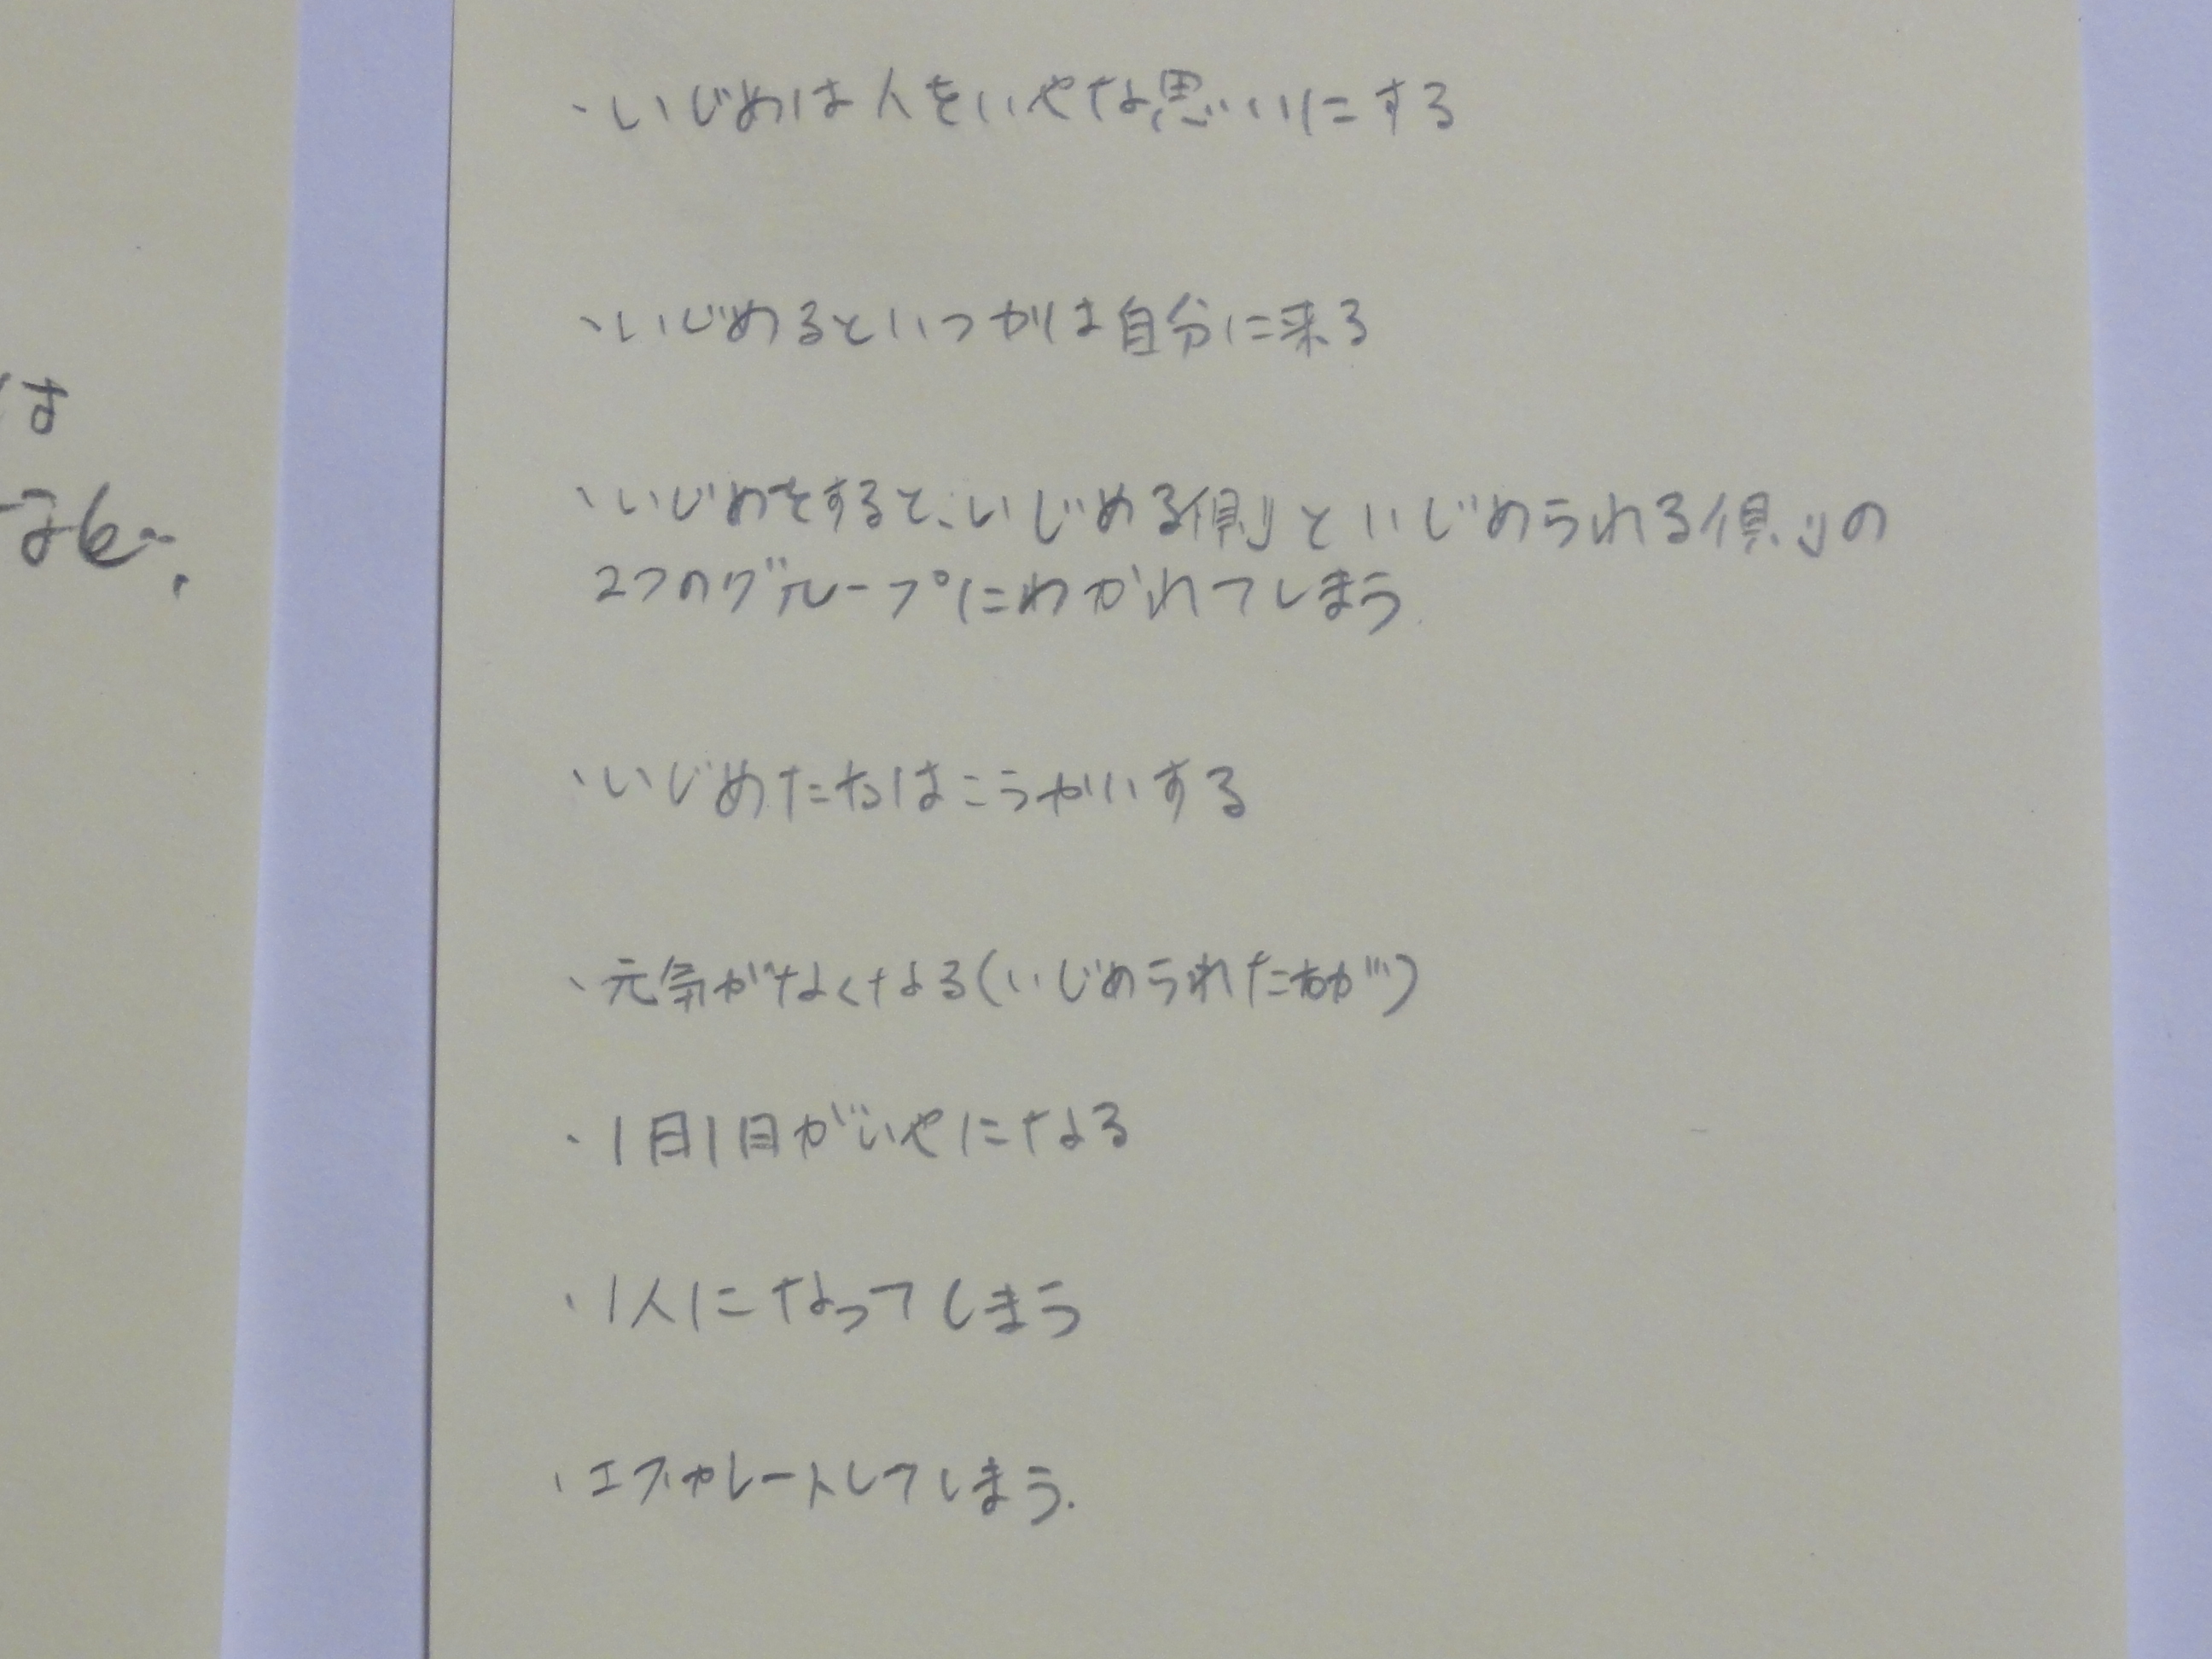 は
・いじめは人をいやな思いにする
・いじめるといつかは自分に来る
・いじめをすると、いじめる側といじめられる側の
2つのグループにわかれてしまう
・いじめた方はこうかいする
・元気がなくなる(いじめられた方が)
・1日1日がいやになる
・1人になってしまう
・エスカレートしてしまう.